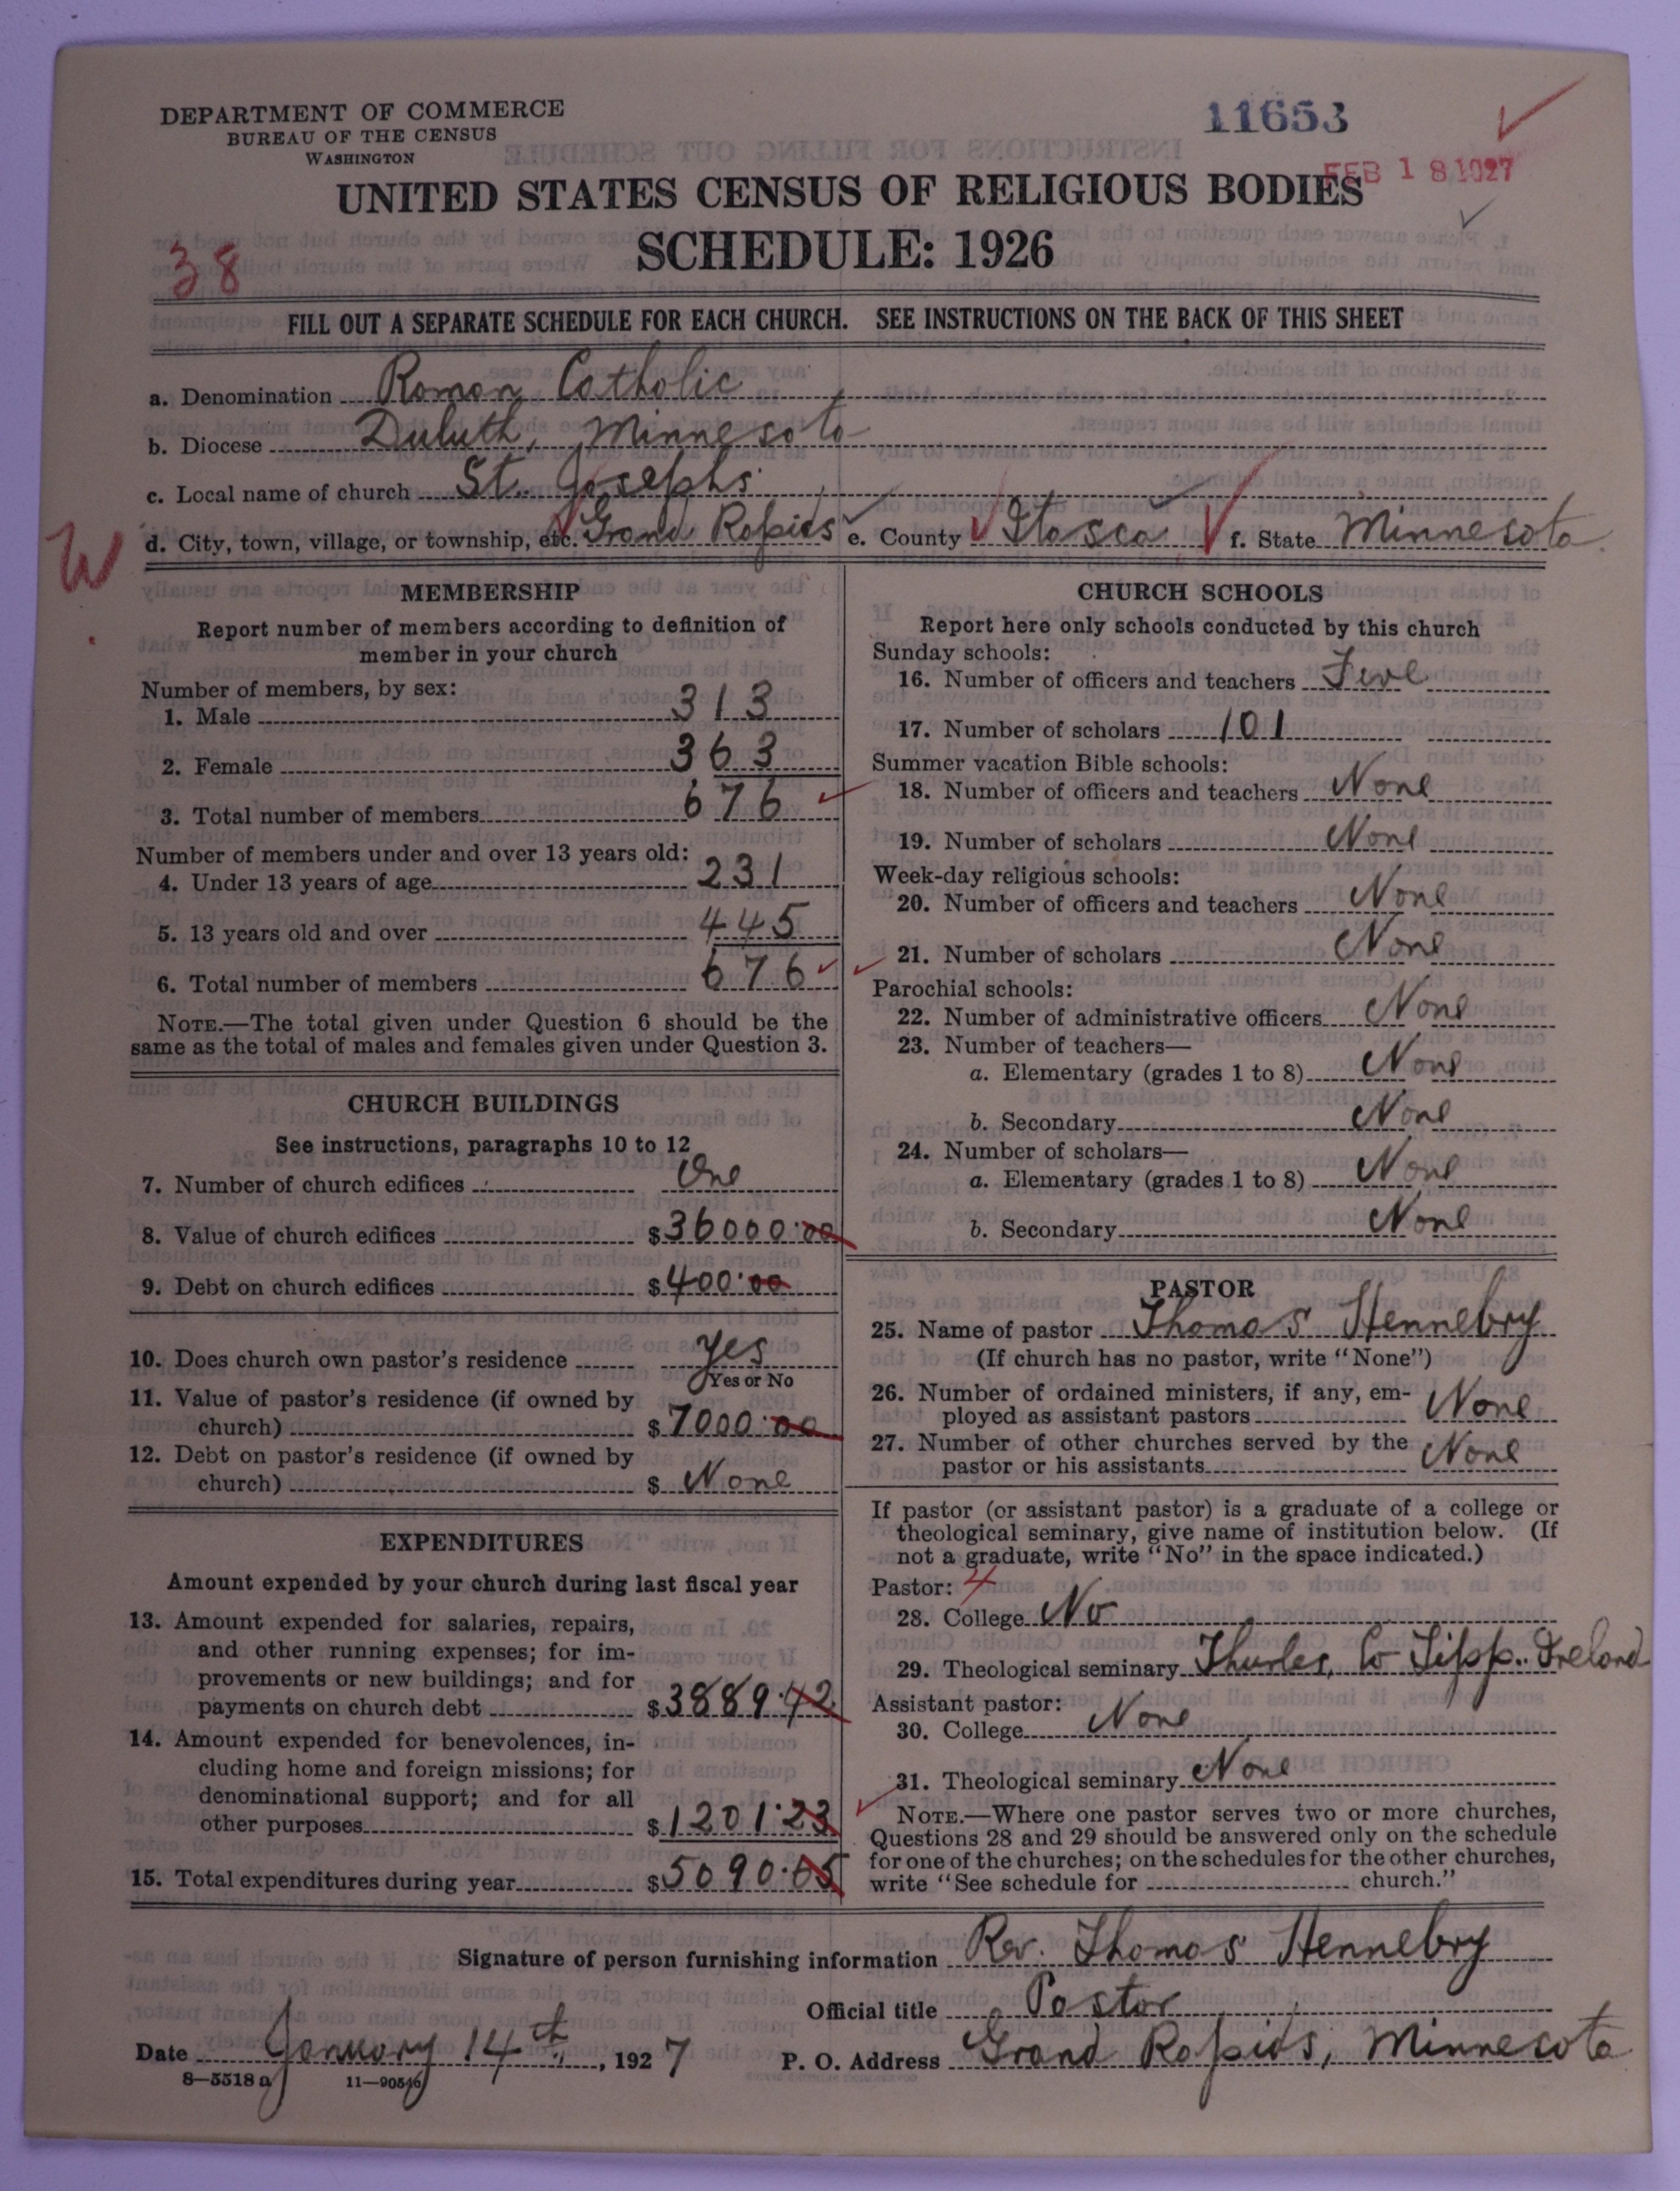 DEPARTMENT OF COMMERCE
BUREAU OF THE CENSUS
WASHINGTON
11653
FEB 18 1927
UNITED STATES CENSUS OF RELIGIOUS BODIES
SCHEDULE: 1926
38
FILL OUT A SEPARATE SCHEDULE FOR EACH CHURCH. SEE INSTRUCTIONS ON THE BACK OF THIS SHEET
a. Denomination Roman Catholic
b. Diocese Duluth, Minnesota
c. Local name of church St. Josephs
W
d. City, town, village, or township, etc. Grand Rapids e. County Itasca f. State Minnesota
MEMBERSHIP
Report number of members according to definition of
member in your church
Number of members, by sex:
1. Male 313
2. Female 363
3. Total number of members 676
Number of members under and over 13 years old:
4. Under 13 years of age 231
5. 13 years old and over 445
6. Total number of members 676
NOTE.—The total given under Question 6 should be the
same as the total of males and females given under Question 3.
CHURCH BUILDINGS
See instructions, paragraphs 10 to 12
7. Number of church edifices One
8. Value of church edifices $36000.00
9. Debt on church edifices $400.00
10. Does church own pastor's residence Yes
Yes or No
11. Value of pastor's residence (if owned by
church) $7000.00
12. Debt on pastor's residence (if owned by
church) $ None
EXPENDITURES
Amount expended by your church during last fiscal year
13. Amount expended for salaries, repairs,
and other running expenses; for im-
provements or new buildings; and for
payments on church debt $3889.42
14. Amount expended for benevolences, in-
cluding home and foreign missions; for
denominational support; and for all
other purposes $1201.23
15. Total expenditures during year $5090.65
CHURCH SCHOOLS
Report here only schools conducted by this church
Sunday schools:
16. Number of officers and teachers
17. Number of scholars 101
Summer vacation Bible schools:
18. Number of officers and teachers None
19. Number of scholars None
Week-day religious schools:
20. Number of officers and teachers None
21. Number of scholars None
Parochial schools:
22. Number of administrative officers None
23. Number of teachers—
a. Elementary (grades 1 to 8) None
b. Secondary None
24. Number of scholars—
a. Elementary (grades 1 to 8) None
b. Secondary None
PASTOR
25. Name of pastor Thomas Hennebry
(If church has no pastor, write "None")
26. Number of ordained ministers, if any, em-
ployed as assistant pastors None
27. Number of other churches served by the
pastor or his assistants None
If pastor (or assistant pastor) is a graduate of a college or
theological seminary, give name of institution below. (If
not a graduate, write "No" in the space indicated.)
Pastor: 4
28. College No
29. Theological seminary Thurles, Co Tipp. Ireland
Assistant pastor:
30. College None
31. Theological seminary None
NOTE.—Where one pastor serves two or more churches,
Questions 28 and 29 should be answered only on the schedule
for one of the churches; on the schedules for the other churches,
write "See schedule for church."
Signature of person furnishing information Rev. Thomas Hennebry
Official title Pastor
Date January 14th, 1927 P. O. Address Grand Rapids, Minnesota
8—5518 a 11—90546